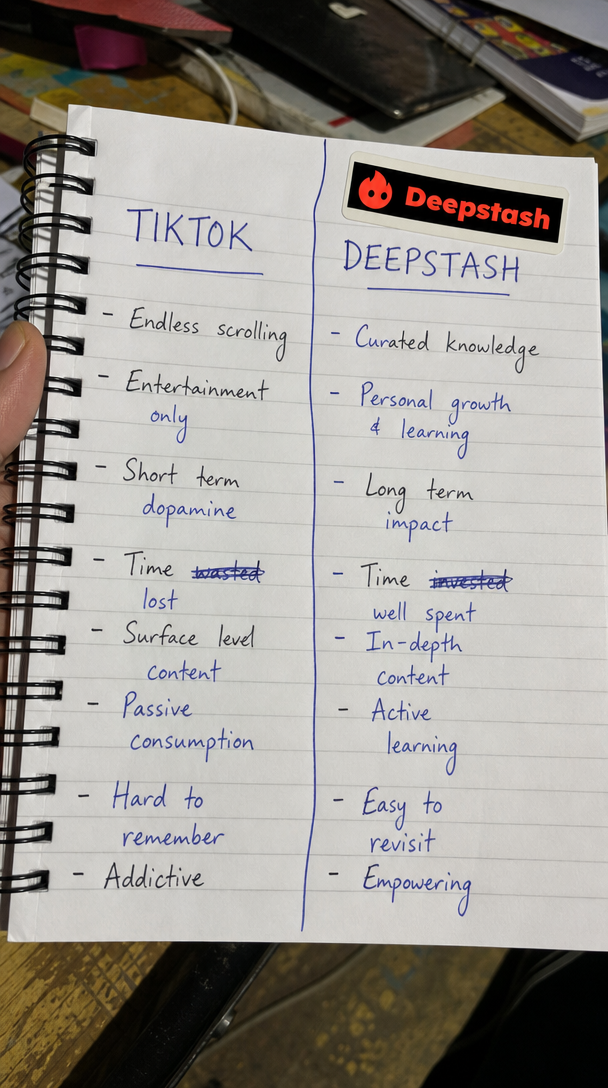 Deepstash
TIKTOK
- Endless scrolling
- Entertainment
only
- Short term
dopamine
- Time wasted
lost
- Surface level
content
- Passive
consumption
- Hard to
remember
- Addictive
DEEPSTASH
- Curated knowledge
- Personal growth
& learning
- Long term
impact
- Time invested
well spent
- In-depth
content
- Active
learning
- Easy to
revisit
- Empowering